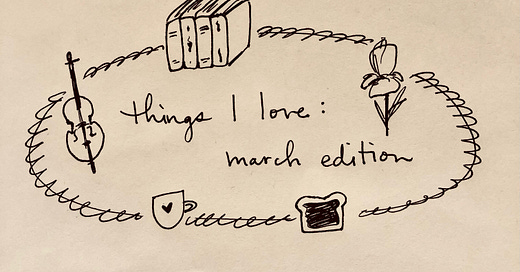 things I love:
march edition